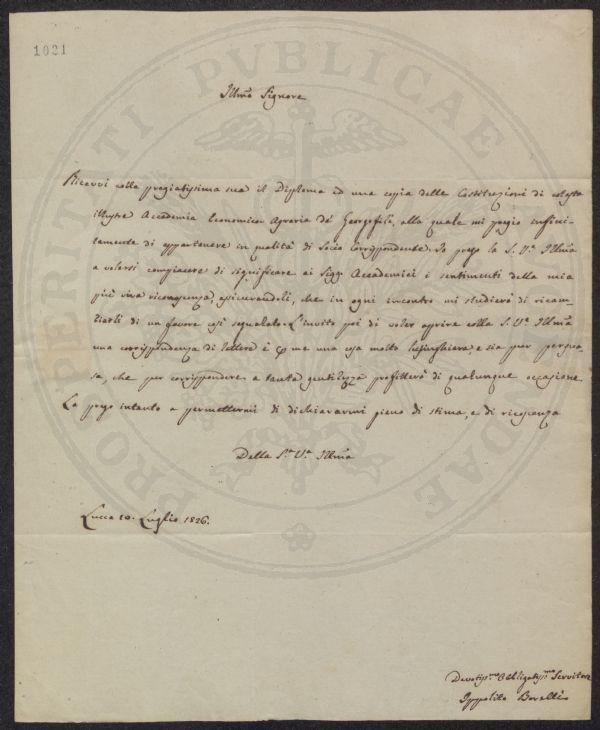 1021
PROSPERITATI PVBLICAE
Illmo Signore
Ricevei colla pregiatissima sua il Diploma ed una copia delle Costituzioni di codesta
illustre Accademia Economico Agraria de' Georgofili, alla quale mi pregio infini-
tamente di appartenere in qualità di Socio Corrispondente. Io prego la S. Va. Illma
a volersi compiacere di significare ai Sigg. Accademici i sentimenti della mia
più viva riconoscenza, assicurandoli, che in ogni incontro mi studierò di ricam-
biarli di un favore così segnalato. L'invito poi di voler aprire colla S. Va. Illma
una corrispondenza di lettere è per me una cosa molto lusinghiera, e sia pur persua-
sa, che per corrispondere a tanta gentilezza profitterò di qualunque occasione.
La prego intanto a permettermi di dichiararmi pieno di stima, e di riconoscenza
Della Sa. Va. Illma
Lucca 10. Luglio 1826.
Devotissmo Obbligatissmo Servitore
Ippolito